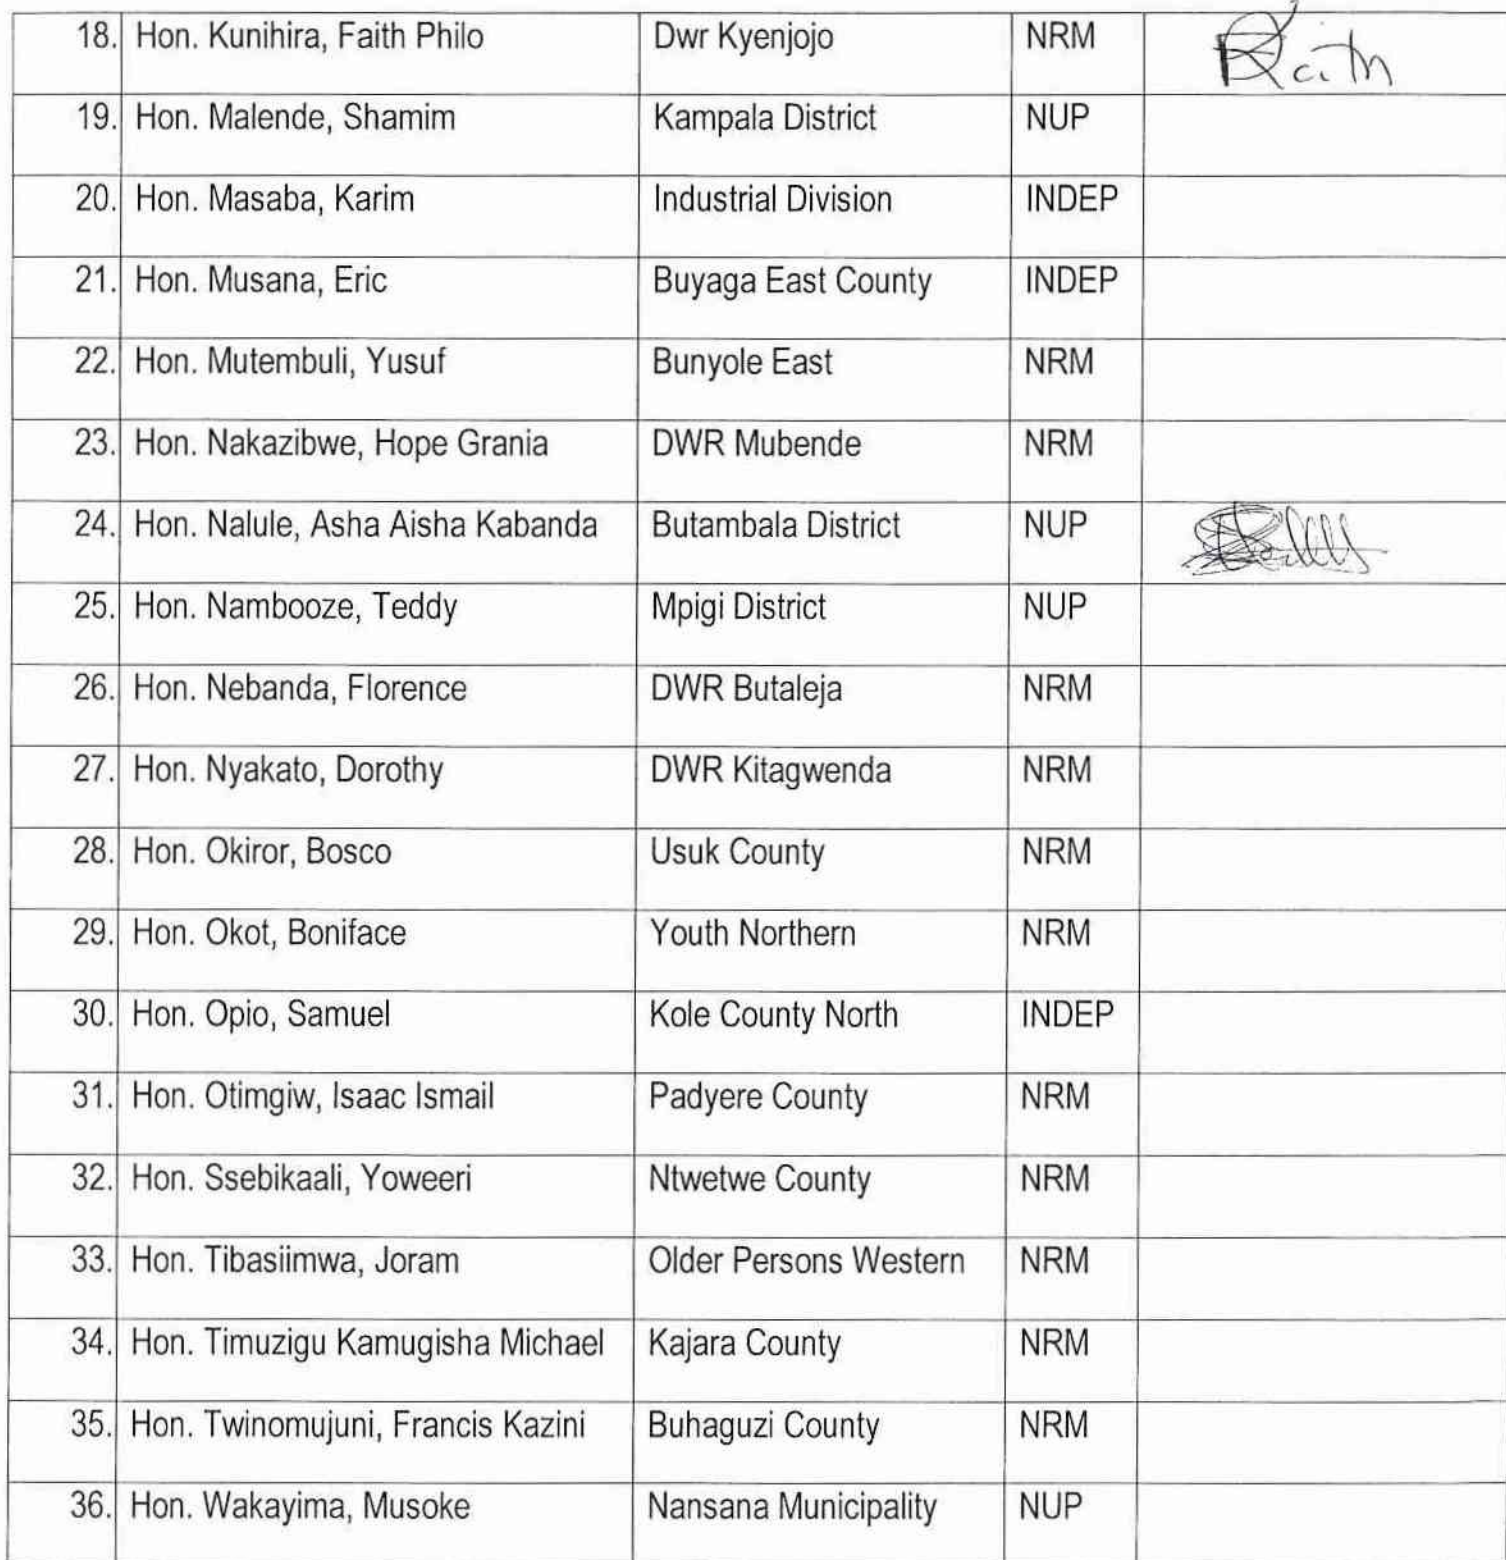 18. Hon. Kunihira, Faith Philo Dwr Kyenjojo NRM Faith
19. Hon. Malende, Shamim Kampala District NUP
20. Hon. Masaba, Karim Industrial Division INDEP
21. Hon. Musana, Eric Buyaga East County INDEP
22. Hon. Mutembuli, Yusuf Bunyole East NRM
23. Hon. Nakazibwe, Hope Grania DWR Mubende NRM
24. Hon. Nalule, Asha Aisha Kabanda Butambala District NUP
25. Hon. Nambooze, Teddy Mpigi District NUP
26. Hon. Nebanda, Florence DWR Butaleja NRM
27. Hon. Nyakato, Dorothy DWR Kitagwenda NRM
28. Hon. Okiror, Bosco Usuk County NRM
29. Hon. Okot, Boniface Youth Northern NRM
30. Hon. Opio, Samuel Kole County North INDEP
31. Hon. Otimgiw, Isaac Ismail Padyere County NRM
32. Hon. Ssebikaali, Yoweeri Ntwetwe County NRM
33. Hon. Tibasiimwa, Joram Older Persons Western NRM
34. Hon. Timuzigu Kamugisha Michael Kajara County NRM
35. Hon. Twinomujuni, Francis Kazini Buhaguzi County NRM
36. Hon. Wakayima, Musoke Nansana Municipality NUP